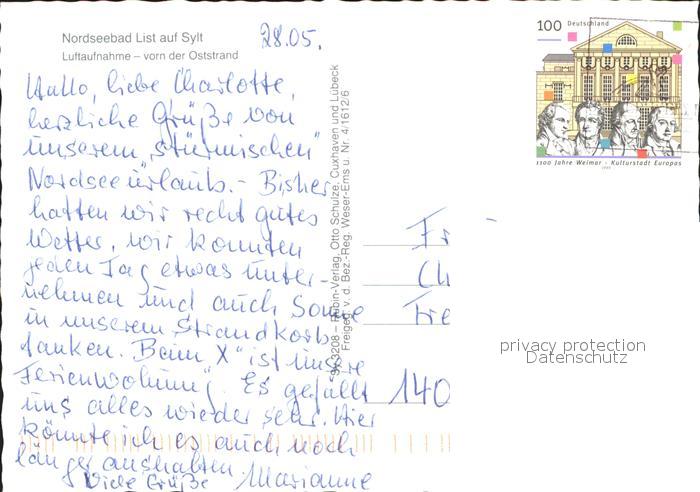 Nordseebad List auf Sylt
Luftaufnahme – vorn der Oststrand
28.05.
Hallo, liebe Charlotte,
herzliche Grüße von
unserem „stürmischen"
Nordseeurlaub. - Bisher
hatten wir recht gutes
Wetter, wir konnten
jeden Tag etwas unter-
nehmen und auch Sonne
in unserem Strandkorb
tanken. Beim „X" ist unsere
Ferienwohnung. Es gefällt
uns alles wieder sehr. Hier
könnte ich es auch noch
länger aushalten.
Viele Grüße Marianne
SK3208 – Rubin-Verlag, Otto Schulze, Cuxhaven und Lübeck
Freigeg. v. d. Bez.-Reg. Weser-Ems u. Nr. 4/1612/6
100 Deutschland
1100 Jahre Weimar - Kulturstadt Europas
1999
Fr
Ch
Fre
140
privacy protection
Datenschutz